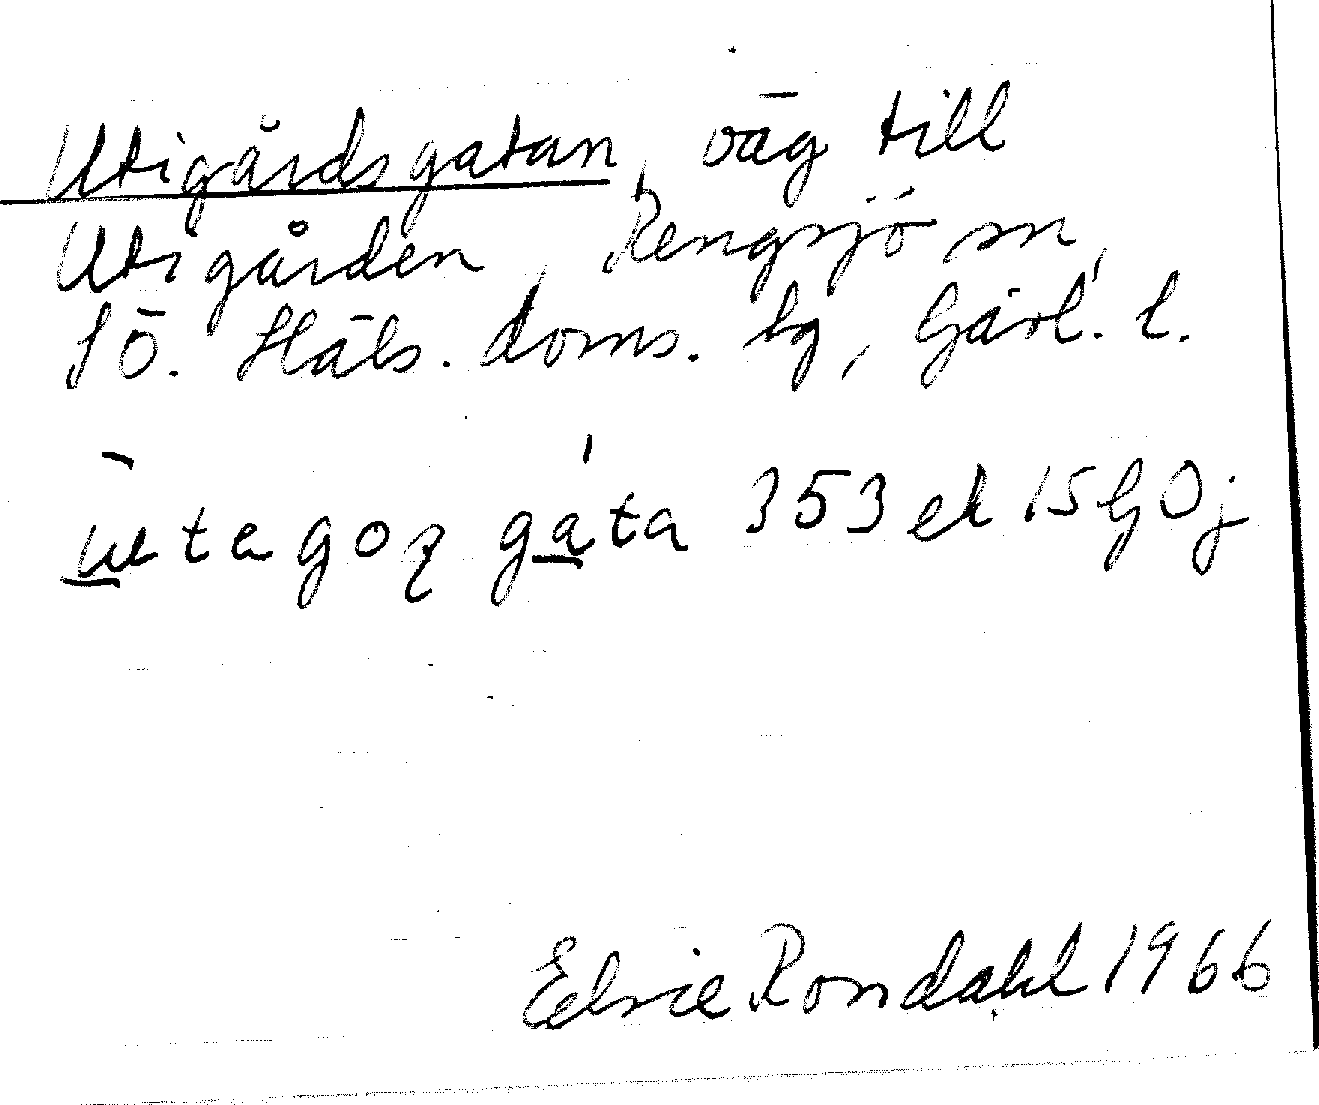 Utigårdsgatan, väg till
Utigården, Rengsjö sn,
Sö. Häls. doms. tg, Gävl. l.
ùtegoʒ gáta 353 ek 15 GOj
Elsie Rondahl 1966